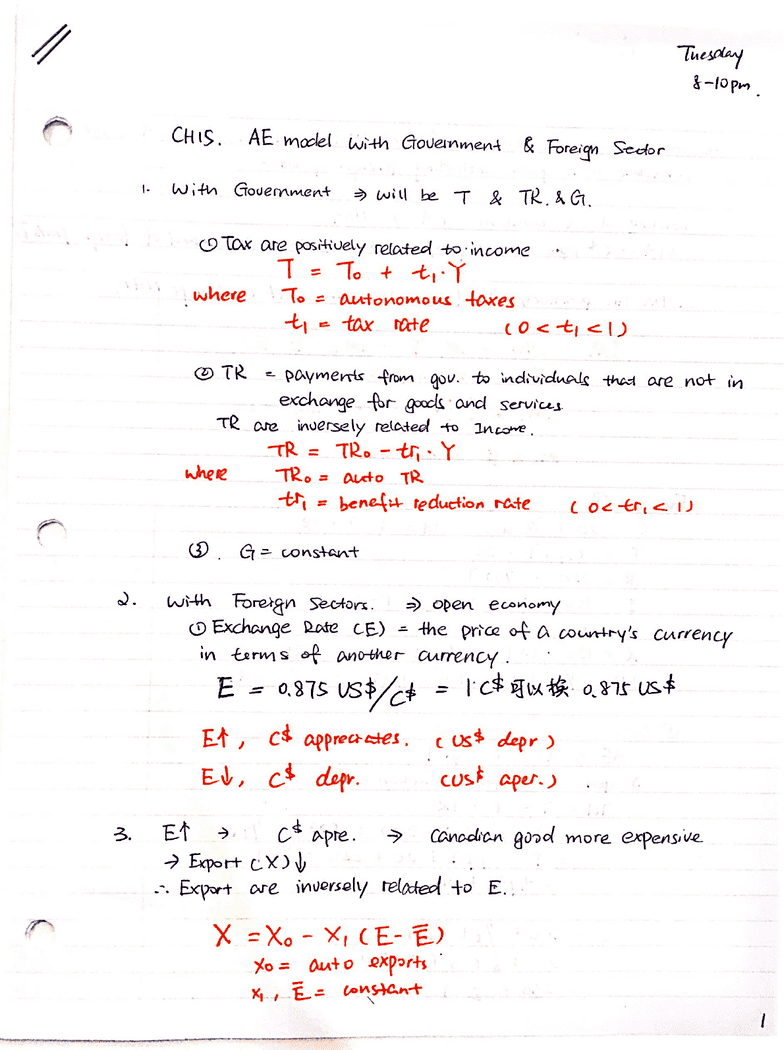 Tuesday
8-10pm.
CH15. AE model with Government & Foreign Sector
1. With Government ⇒ will be T & TR. & G.
① Tax are positively related to income
T = T₀ + t₁·Y
where T₀ = autonomous taxes
t₁ = tax rate (0 < t₁ < 1)
② TR = payments from gov. to individuals that are not in
exchange for goods and services
TR are inversely related to Income.
TR = TR₀ - tr₁·Y
where TR₀ = auto TR
tr₁ = benefit reduction rate (0 < tr₁ < 1)
③. G = constant
2. With Foreign Sectors. ⇒ open economy
① Exchange Rate (E) = the price of a country's currency
in terms of another currency.
E = 0.875 US$/C$ = 1 C$ 可以换 0.875 US$
E↑, C$ appreciates. (US$ depr)
E↓, C$ depr. (US$ aper.)
3. E↑ → C$ apre. → Canadian good more expensive
→ Export (X)↓
∴ Export are inversely related to E.
X = X₀ - X₁(E-Ē)
X₀ = auto exports
X₁, Ē = constant
1